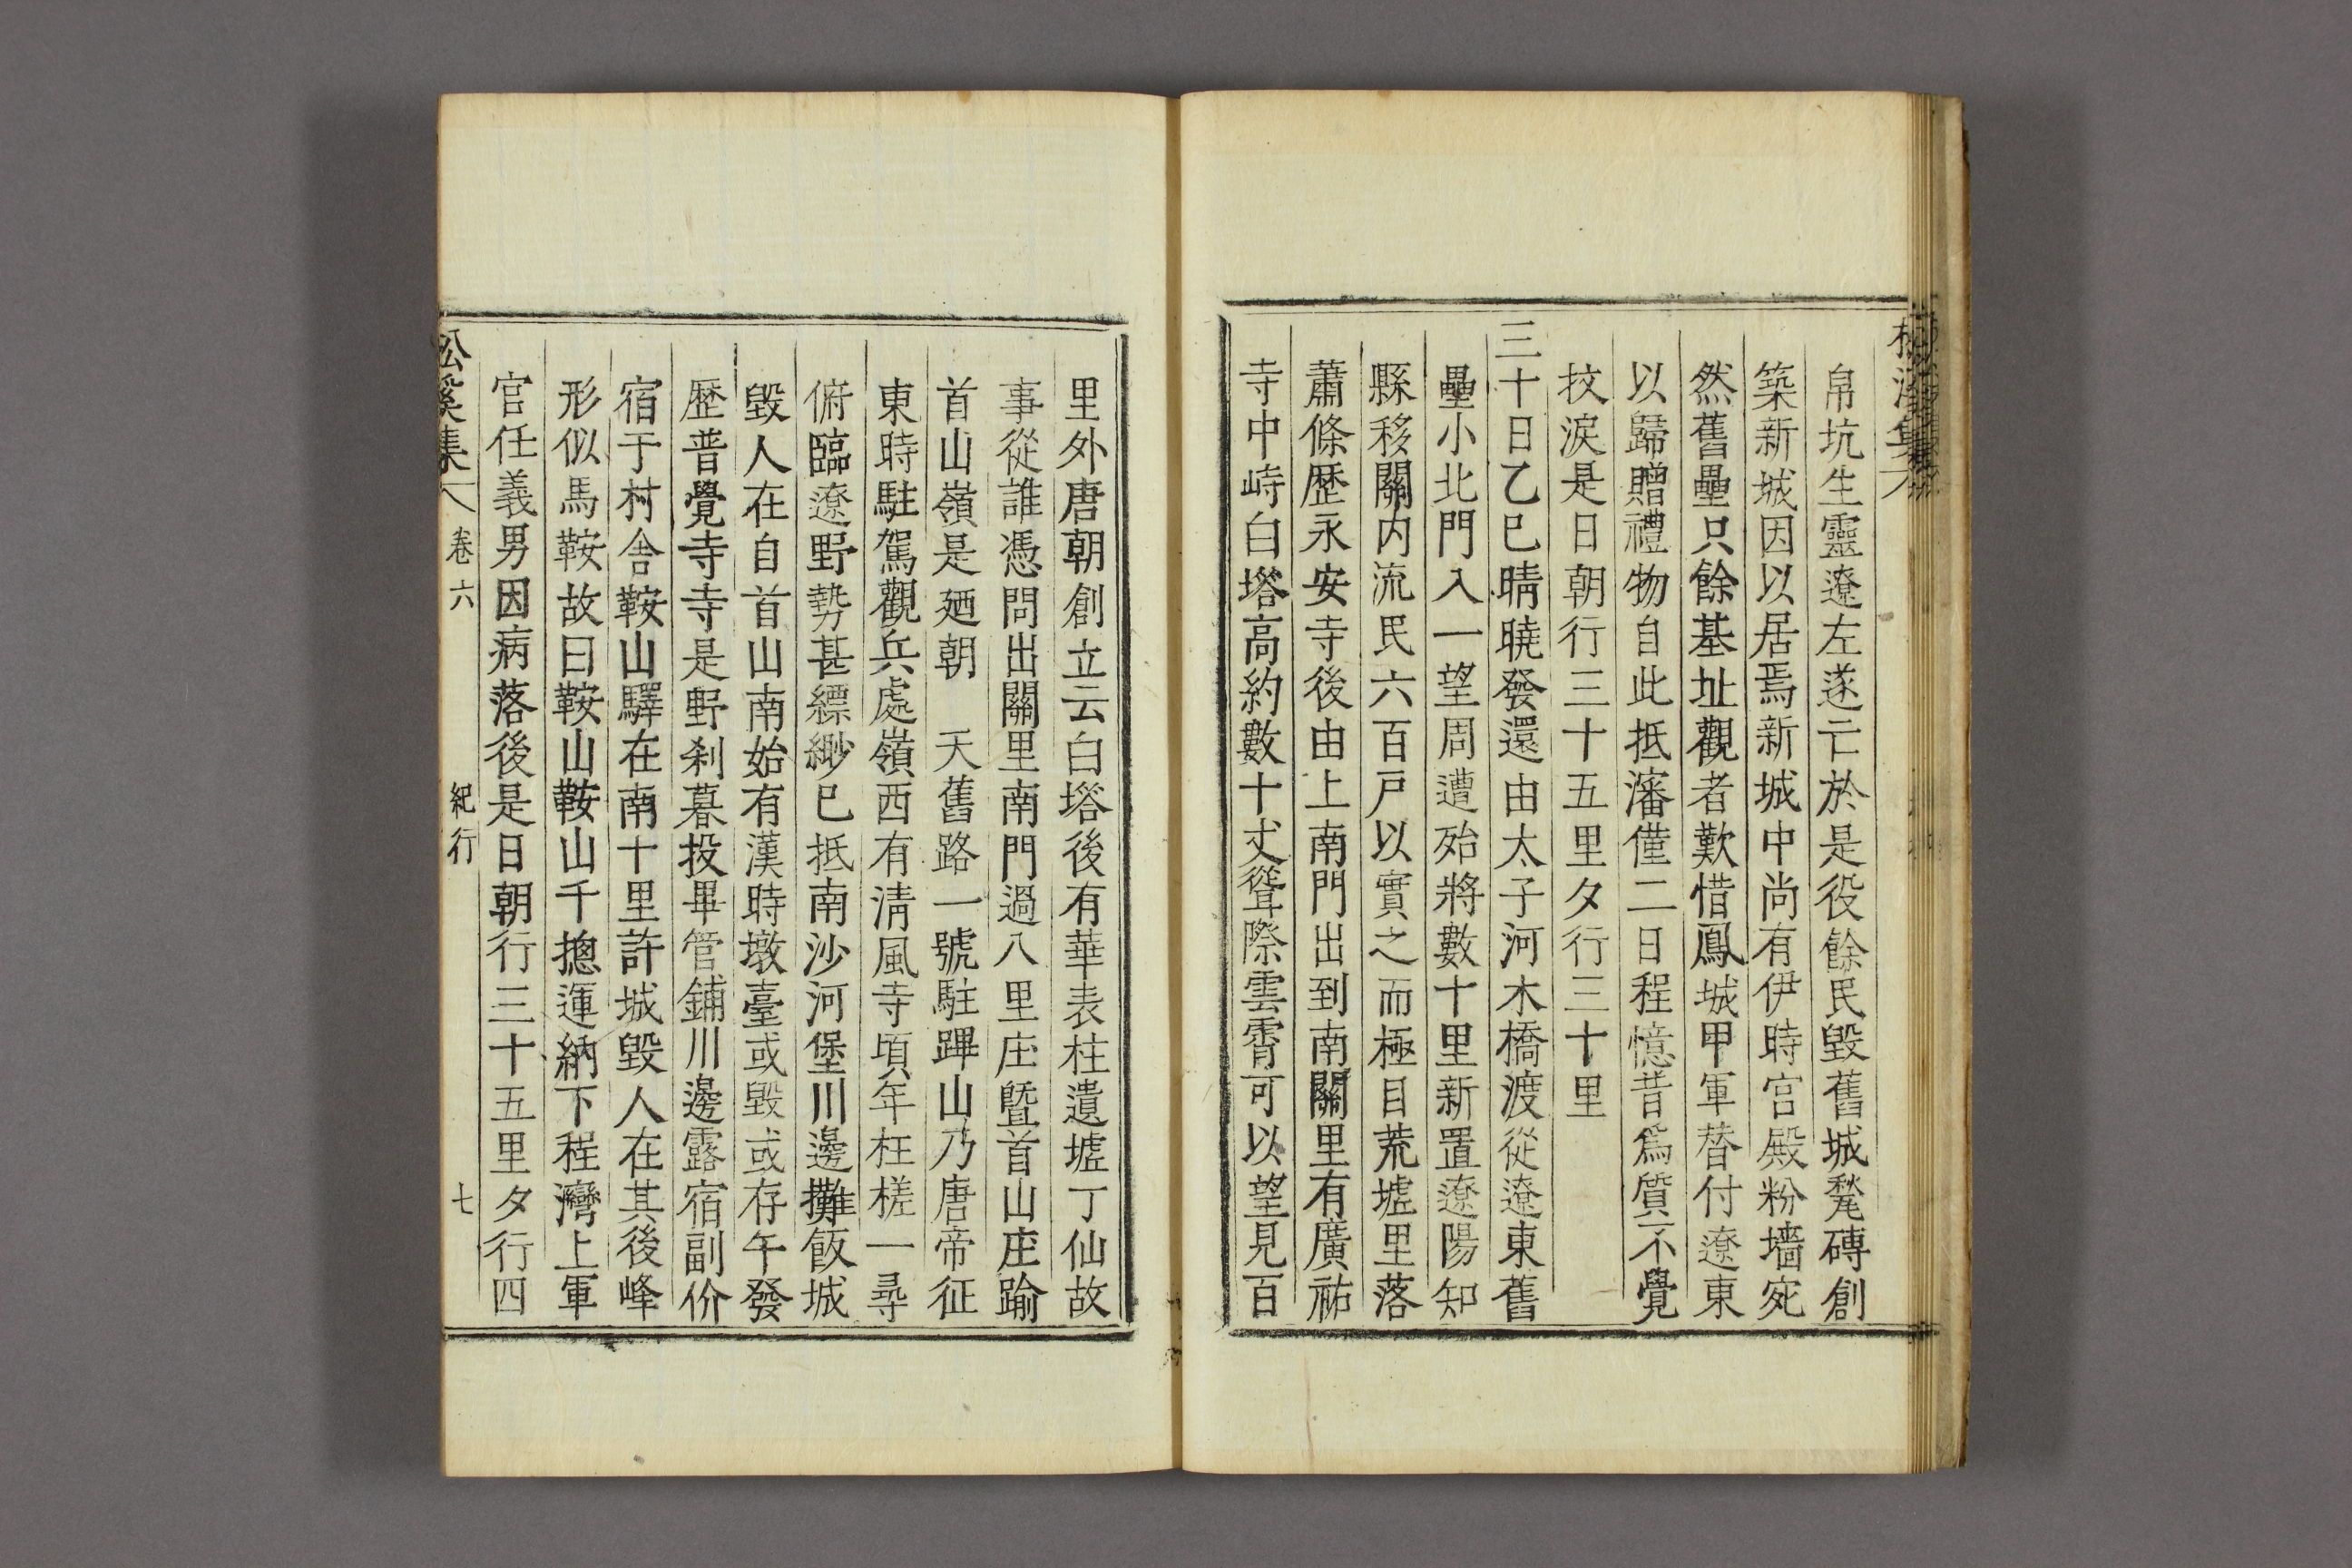 帛坑生靈遼左遂亡於是役餘民毀舊城甃磚創
築新城因以居焉新城中尚有伊時宮殿粉墻宛
然舊壘只餘基址觀者歎惜鳳城甲軍替付遼東
以歸贈禮物自此抵瀋僅二日程憶昔爲質不覺
抆淚是日朝行三十五里夕行三十里
三十日乙巳晴曉發還由太子河木橋渡從遼東舊
壘小北門入一望周遭殆將數十里新置遼陽知
縣移關内流民六百戶以實之而極目荒墟里落
蕭條歷永安寺後由上南門出到南關里有廣祐
寺中峙白塔高約數十丈聳際雲霄可以望見百
里外唐朝創立云白塔後有華表柱遺墟丁仙故
事從誰憑問出關里南門過八里庄曁首山庄踰
首山嶺是廼朝　天舊路一號駐蹕山乃唐帝征
東時駐駕觀兵處嶺西有淸風寺頃年枉槎一尋
俯臨遼野勢甚縹緲已抵南沙河堡川邊攤飯城
毀人在自首山南始有漢時墩臺或毀或存午發
歷普覺寺寺是野刹暮投畢管鋪川邊露宿副价
宿于村舍鞍山驛在南十里許城毀人在其後峰
形似馬鞍故曰鞍山鞍山千摠運納下程灣上軍
官任義男因病落後是日朝行三十五里夕行四
松溪集　卷六　紀行　七